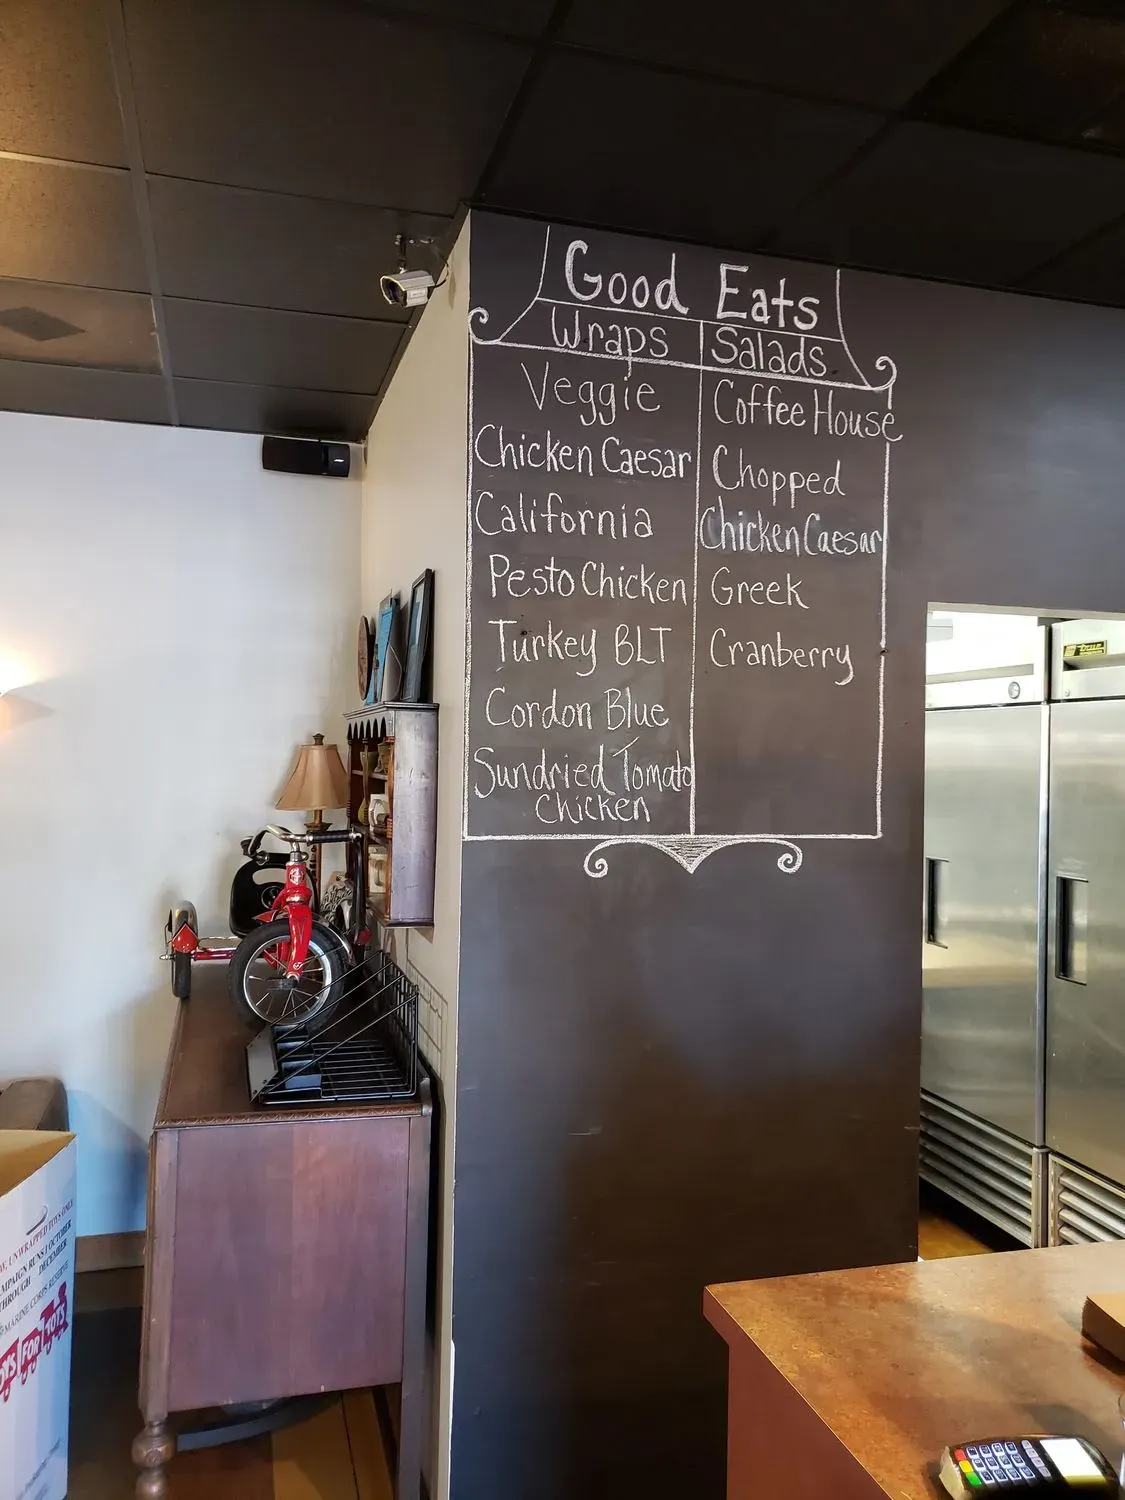 Good Eats
Wraps
Veggie
Chicken Caesar
California
Pesto Chicken
Turkey BLT
Cordon Blue
Sundried Tomato
Chicken
Salads
Coffee House
Chopped
Chicken Caesar
Greek
Cranberry
true
UNWRAPPED TOYS ONLY
RUNS OCTOBER
THROUGH DECEMBER
MARINE CORPS RESERVE
FOR TOTS